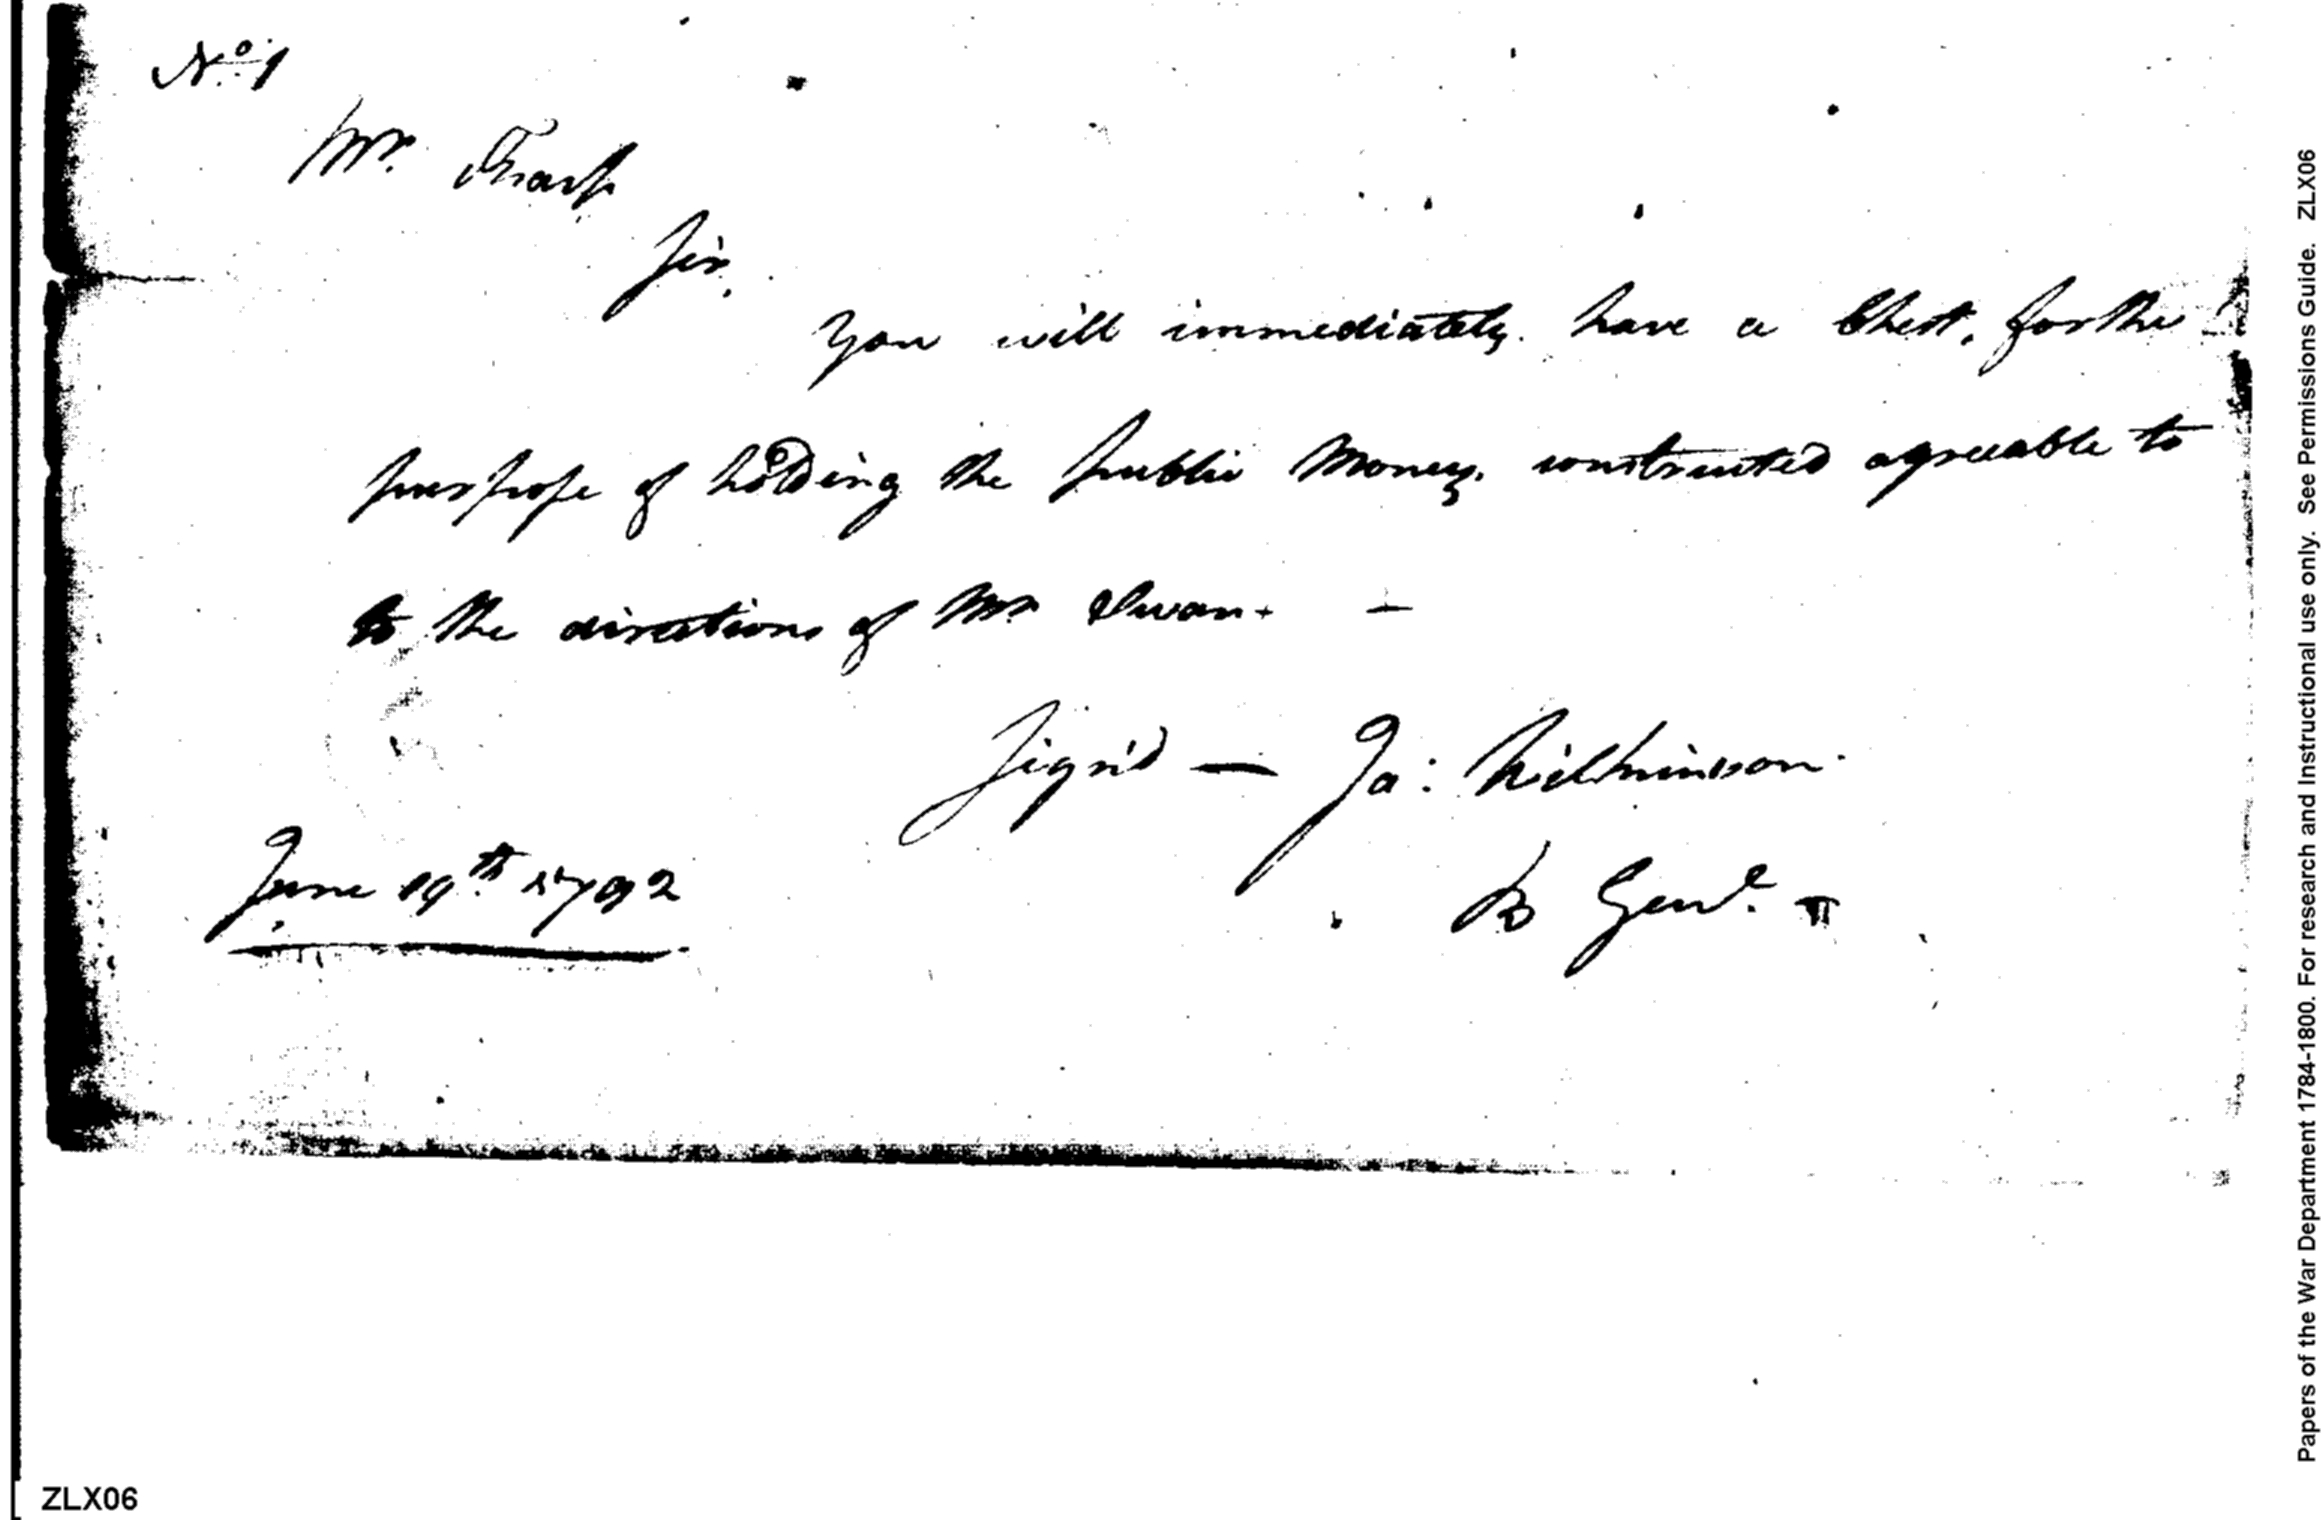 No. 1
Mr. Tharp
Sir,
You will immediately have a Chest, for the
purpose of holding the public Money, constructed agreeable to
to the directions of Mr Swan. —
Sign'd — Ja: Wilkinson.
B Genl.
June 19th 1792
ZLX06
Papers of the War Department 1784-1800. For research and Instructional use only. See Permissions Guide. ZLX06